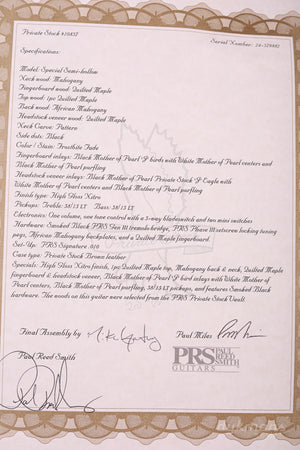 Private Stock #10837
Serial Number: 24-
Specifications:
Model: Special Semi-hollow
Neck wood: Mahogany
Fingerboard wood: Quilted Maple
Top wood: 1pc Quilted Maple
Back wood: African Mahogany
Headstock veneer wood: Quilted Maple
Neck Carve: Pattern
Side dots: Black
Color / Stain: Frostbite Fade
Fingerboard inlays: Black Mother of Pearl J birds with White Mother of Pearl centers and
Black Mother of Pearl purfling
Headstock inlays: Black Mother of Pearl Private Stock P Eagle with
White Mother of Pearl centers and Black Mother of Pearl purfling
Finish type: High Gloss Nitro
Pickups: Treble: 58/15 LT Bass: 58/15 LT
Electronics: One volume, one tone control with a 5-way bladeswitch and two mini switches
Hardware: Smoked Black PRS Gen III tremolo bridge, PRS Phase III setscrew locking tuning
pegs, African Mahogany backplates, and a Quilted Maple fingerboard.
Set-Up: PRS Signature .010
Case type: Private Stock Brown leather
Specials: High Gloss Nitro finish, 1pc Quilted Maple top, Mahogany back & neck, Quilted Maple
fingerboard & headstock veneer, Black Mother of Pearl J bird inlays with White Mother of
Pearl centers, Black Mother of Pearl purfling, 58/15 LT pickups, and features Smoked Black
hardware. The woods on this guitar were selected from the PRS Private Stock Vault.
Final Assembly by
Paul Miles
Paul Reed Smith
PRS PAUL REED SMITH
GUITARS